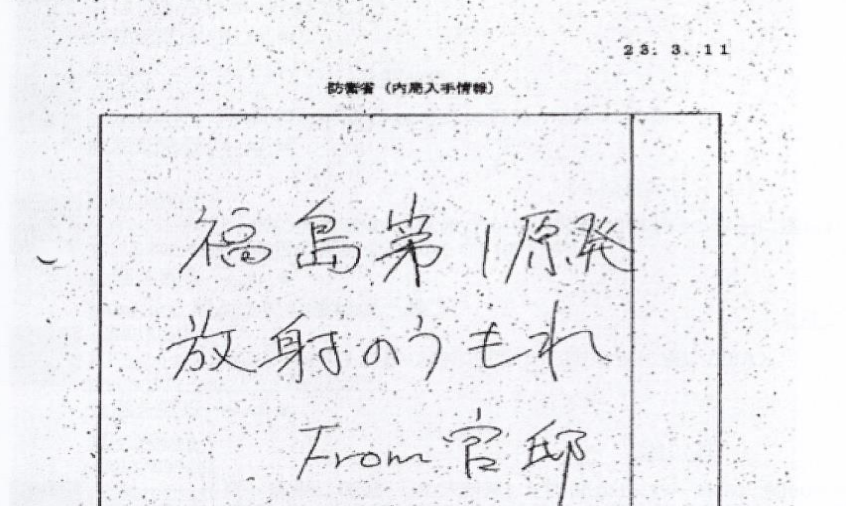 23. 3. 11
防衛省（内局入手情報）
福島第1原発
放射のうもれ
From 官邸